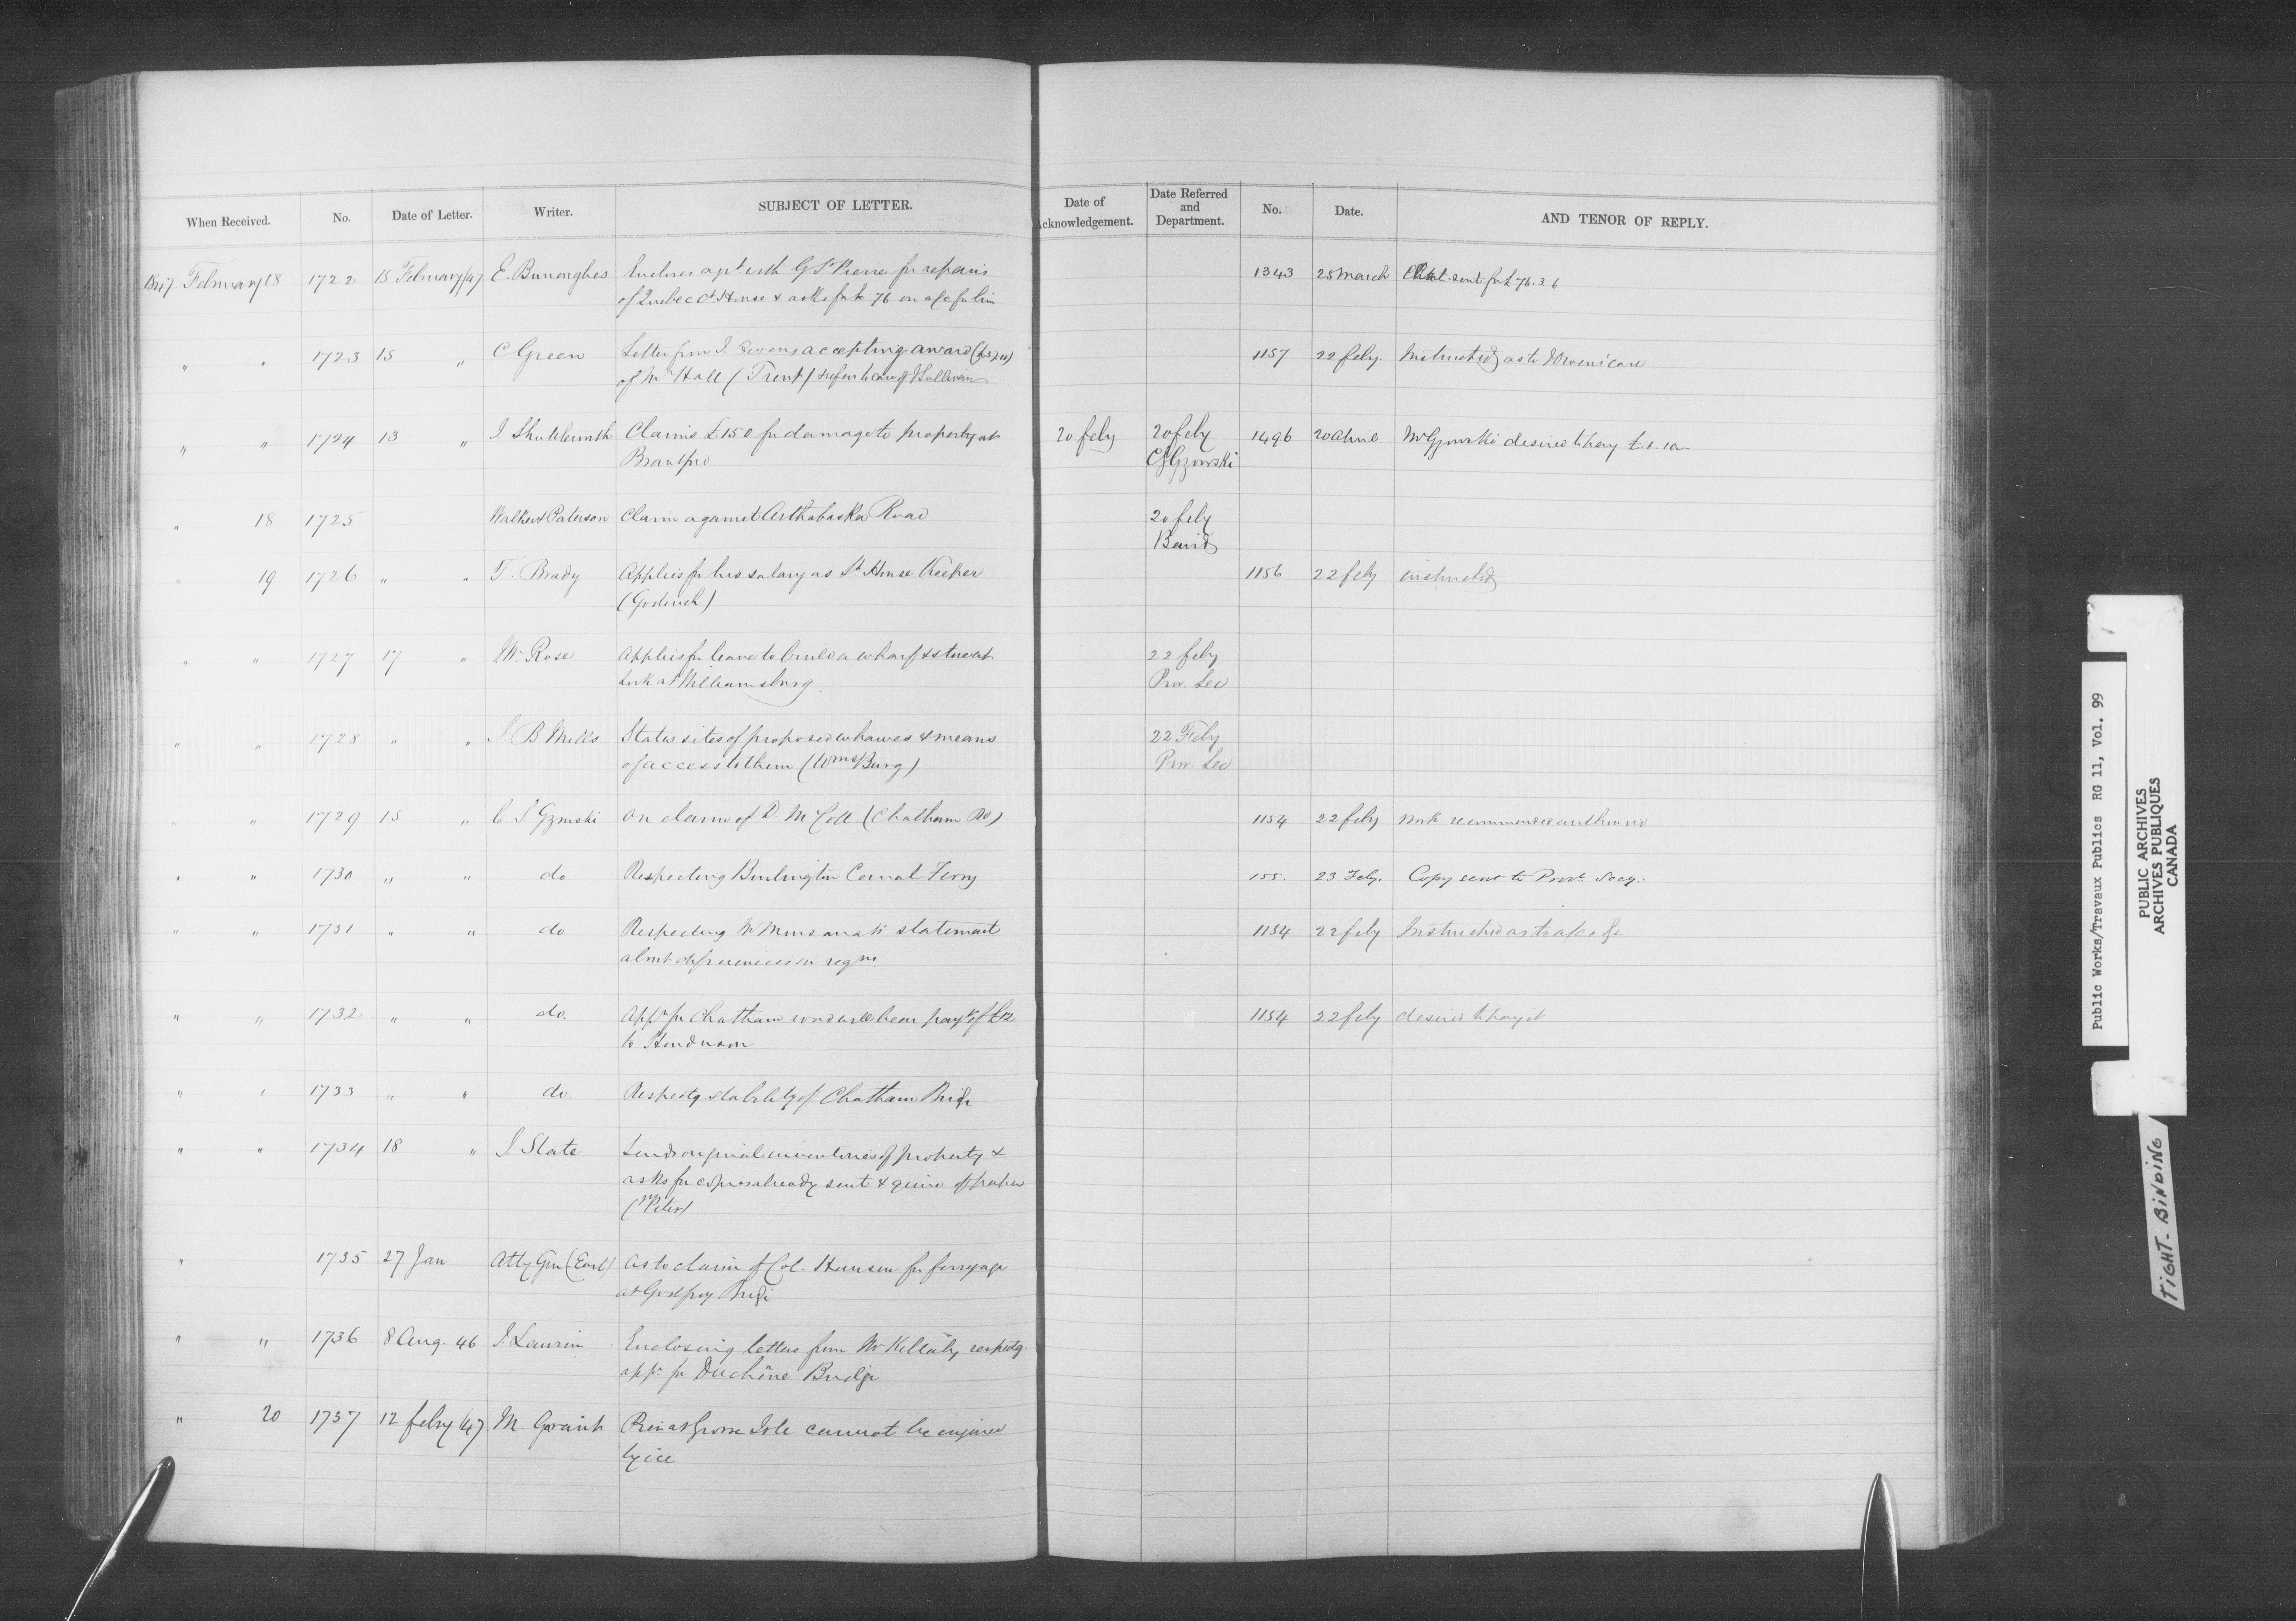 When Received. No. Date of Letter. Writer. SUBJECT OF LETTER. Date of Acknowledgement. Date Referred and Department. No. Date. AND TENOR OF REPLY.
1847 February 18 1722 15 February/47 E. Burroughes Encloses agt with G St Pierre for repairs 1343 25 March sent for £76.3.6
of Quebec Ct House & asks for £ 76 on a/c for him
" " 1723 15 " C Green Letter from J. accepting award 1157 22 feby. Instructed as to case
of Mr Hall (Trent) & refers to case of J Sullivan
" " 1724 13 " J Shuttleworth Claims £150 for damage to property at 20 feby 20 feby 1496 20 April Mr Gzowski desired to pay
Brantford C S Gzowski
" 18 1725 Walker & Paterson Claim against Arthabaska Road 20 feby
Baird
" 19 1726 " " T. Brady Applies for his salary as Lt House Keeper 1156 22 feby instructed
(Goderich)
" " 1727 17 " J W. Rose Applies for leave to build a wharf & store at 22 feby
Lock at Williamsburg Prov. Sec
" " 1728 " " J B Mills States sites of proposed wharves & means 22 Feby
of access to them (Wms Burg) Prov. Sec
" " 1729 15 " C. S Gzowski On claim of D. McColl (Chatham Rd) 1154 22 feby work recommended authorised
" " 1730 " " do. Respecting Burlington Canal Ferry 155. 23 Feby. Copy sent to Provl. Secy.
" " 1731 " " do Respecting Mr statement 1154 22 feby Instructed as to a/cs &c
abt deficiencies in
" " 1732 " " do. Appn for Chatham road will bear payt of £12 1154 22 feby desired to pay it
to Henderson
" " 1733 " " do. Respectg stability of Chatham Bridge
" " 1734 18 " J. Slate Sends original inventories of property &
asks for copies already sent & quire of paper
(St Peter)
" 1735 27 Jan Atty Gen (East) As to claim of Col. Hanson for ferryage
at Godfroy Bridge
" " 1736 8 Aug. 46 J. Laurin Enclosing letters from Mr Killaly respectg.
appn. for Duchêne Bridge
" 20 1737 12 feby /47 M. Grant Pier at Grosse Isle cannot be injured
by ice
Public Works/Travaux Publics RG 11, Vol. 99
PUBLIC ARCHIVES
ARCHIVES PUBLIQUES
CANADA
TIGHT-BINDING